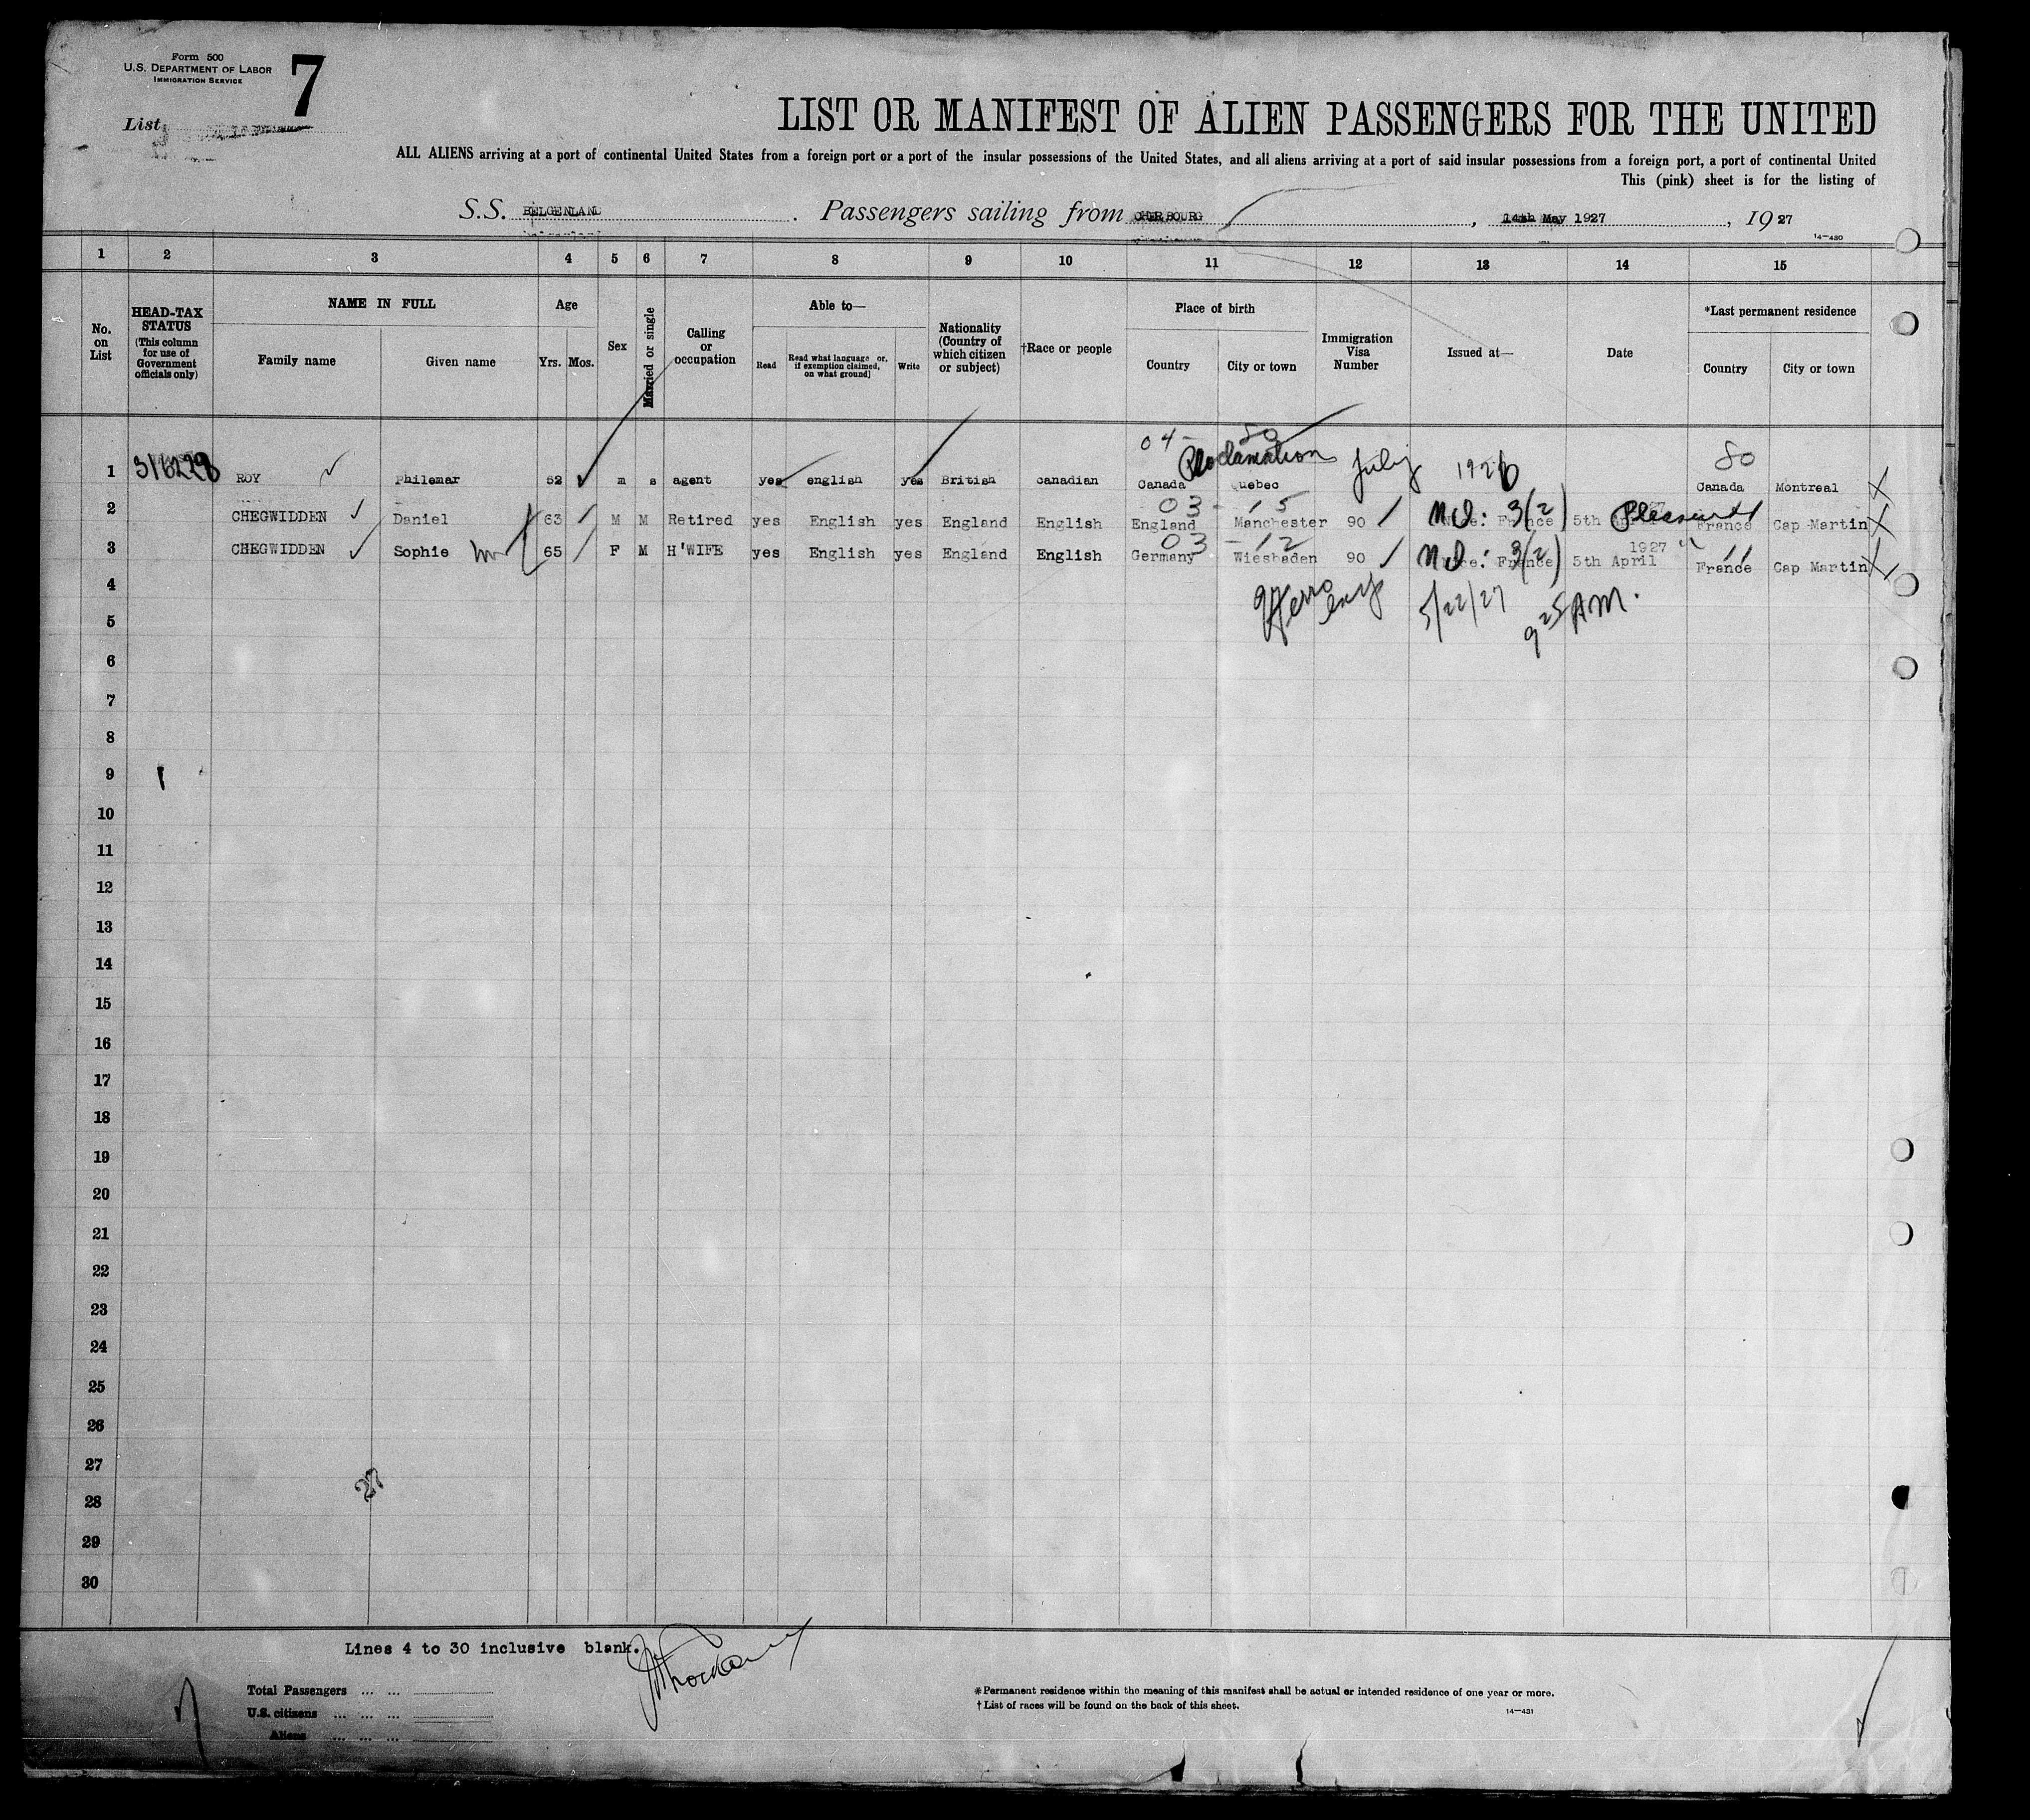 Form 500
U.S. DEPARTMENT OF LABOR
IMMIGRATION SERVICE
7
List
LIST OR MANIFEST OF ALIEN PASSENGERS FOR THE UNITED
ALL ALIENS arriving at a port of continental United States from a foreign port or a port of the insular possessions of the United States, and all aliens arriving at a port of said insular possessions from a foreign port, a port of continental United
This (pink) sheet is for the listing of
S.S. BELGENLAND. Passengers sailing from CHERBOURG, 14th May 1927, 1927
14—430
1 2 3 4 5 6 7 8 9 10 11 12 13 14 15
No. on List
HEAD-TAX STATUS (This column for use of Government officials only)
NAME IN FULL
Family name Given name
Age
Yrs. Mos.
Sex
Married or single
Calling or occupation
Able to—
Read
Read what language or, if exemption claimed, on what ground]
Write
Nationality (Country of which citizen or subject)
†Race or people
Place of birth
Country City or town
Immigration Visa Number
Issued at—
Date
*Last permanent residence
Country City or town
04- 80
Proclamation July 1926 80
1 ROY Philemar 52 m s agent yes english yes British canadian Canada Quebec Canada Montreal X
03 - 15
2 CHEGWIDDEN Daniel 63 M M Retired yes English yes England English England Manchester 90 3(2) 5th France Cap Martin X
03 - 12 1927
3 CHEGWIDDEN Sophie 65 F M H'WIFE yes English yes England English Germany Wiesbaden 90 3(2) 5th April France Cap Martin X
4
5/22/27 9 25 AM.
5
6
7
8
9
10
11
12
13
14
15
16
17
18
19
20
21
22
23
24
25
26
27
28
29
30
Lines 4 to 30 inclusive blank.
Total Passengers ... ...
U.S. citizens ... ... ...
Aliens ... ... ...
*Permanent residence within the meaning of this manifest shall be actual or intended residence of one year or more.
†List of races will be found on the back of this sheet.
14—431